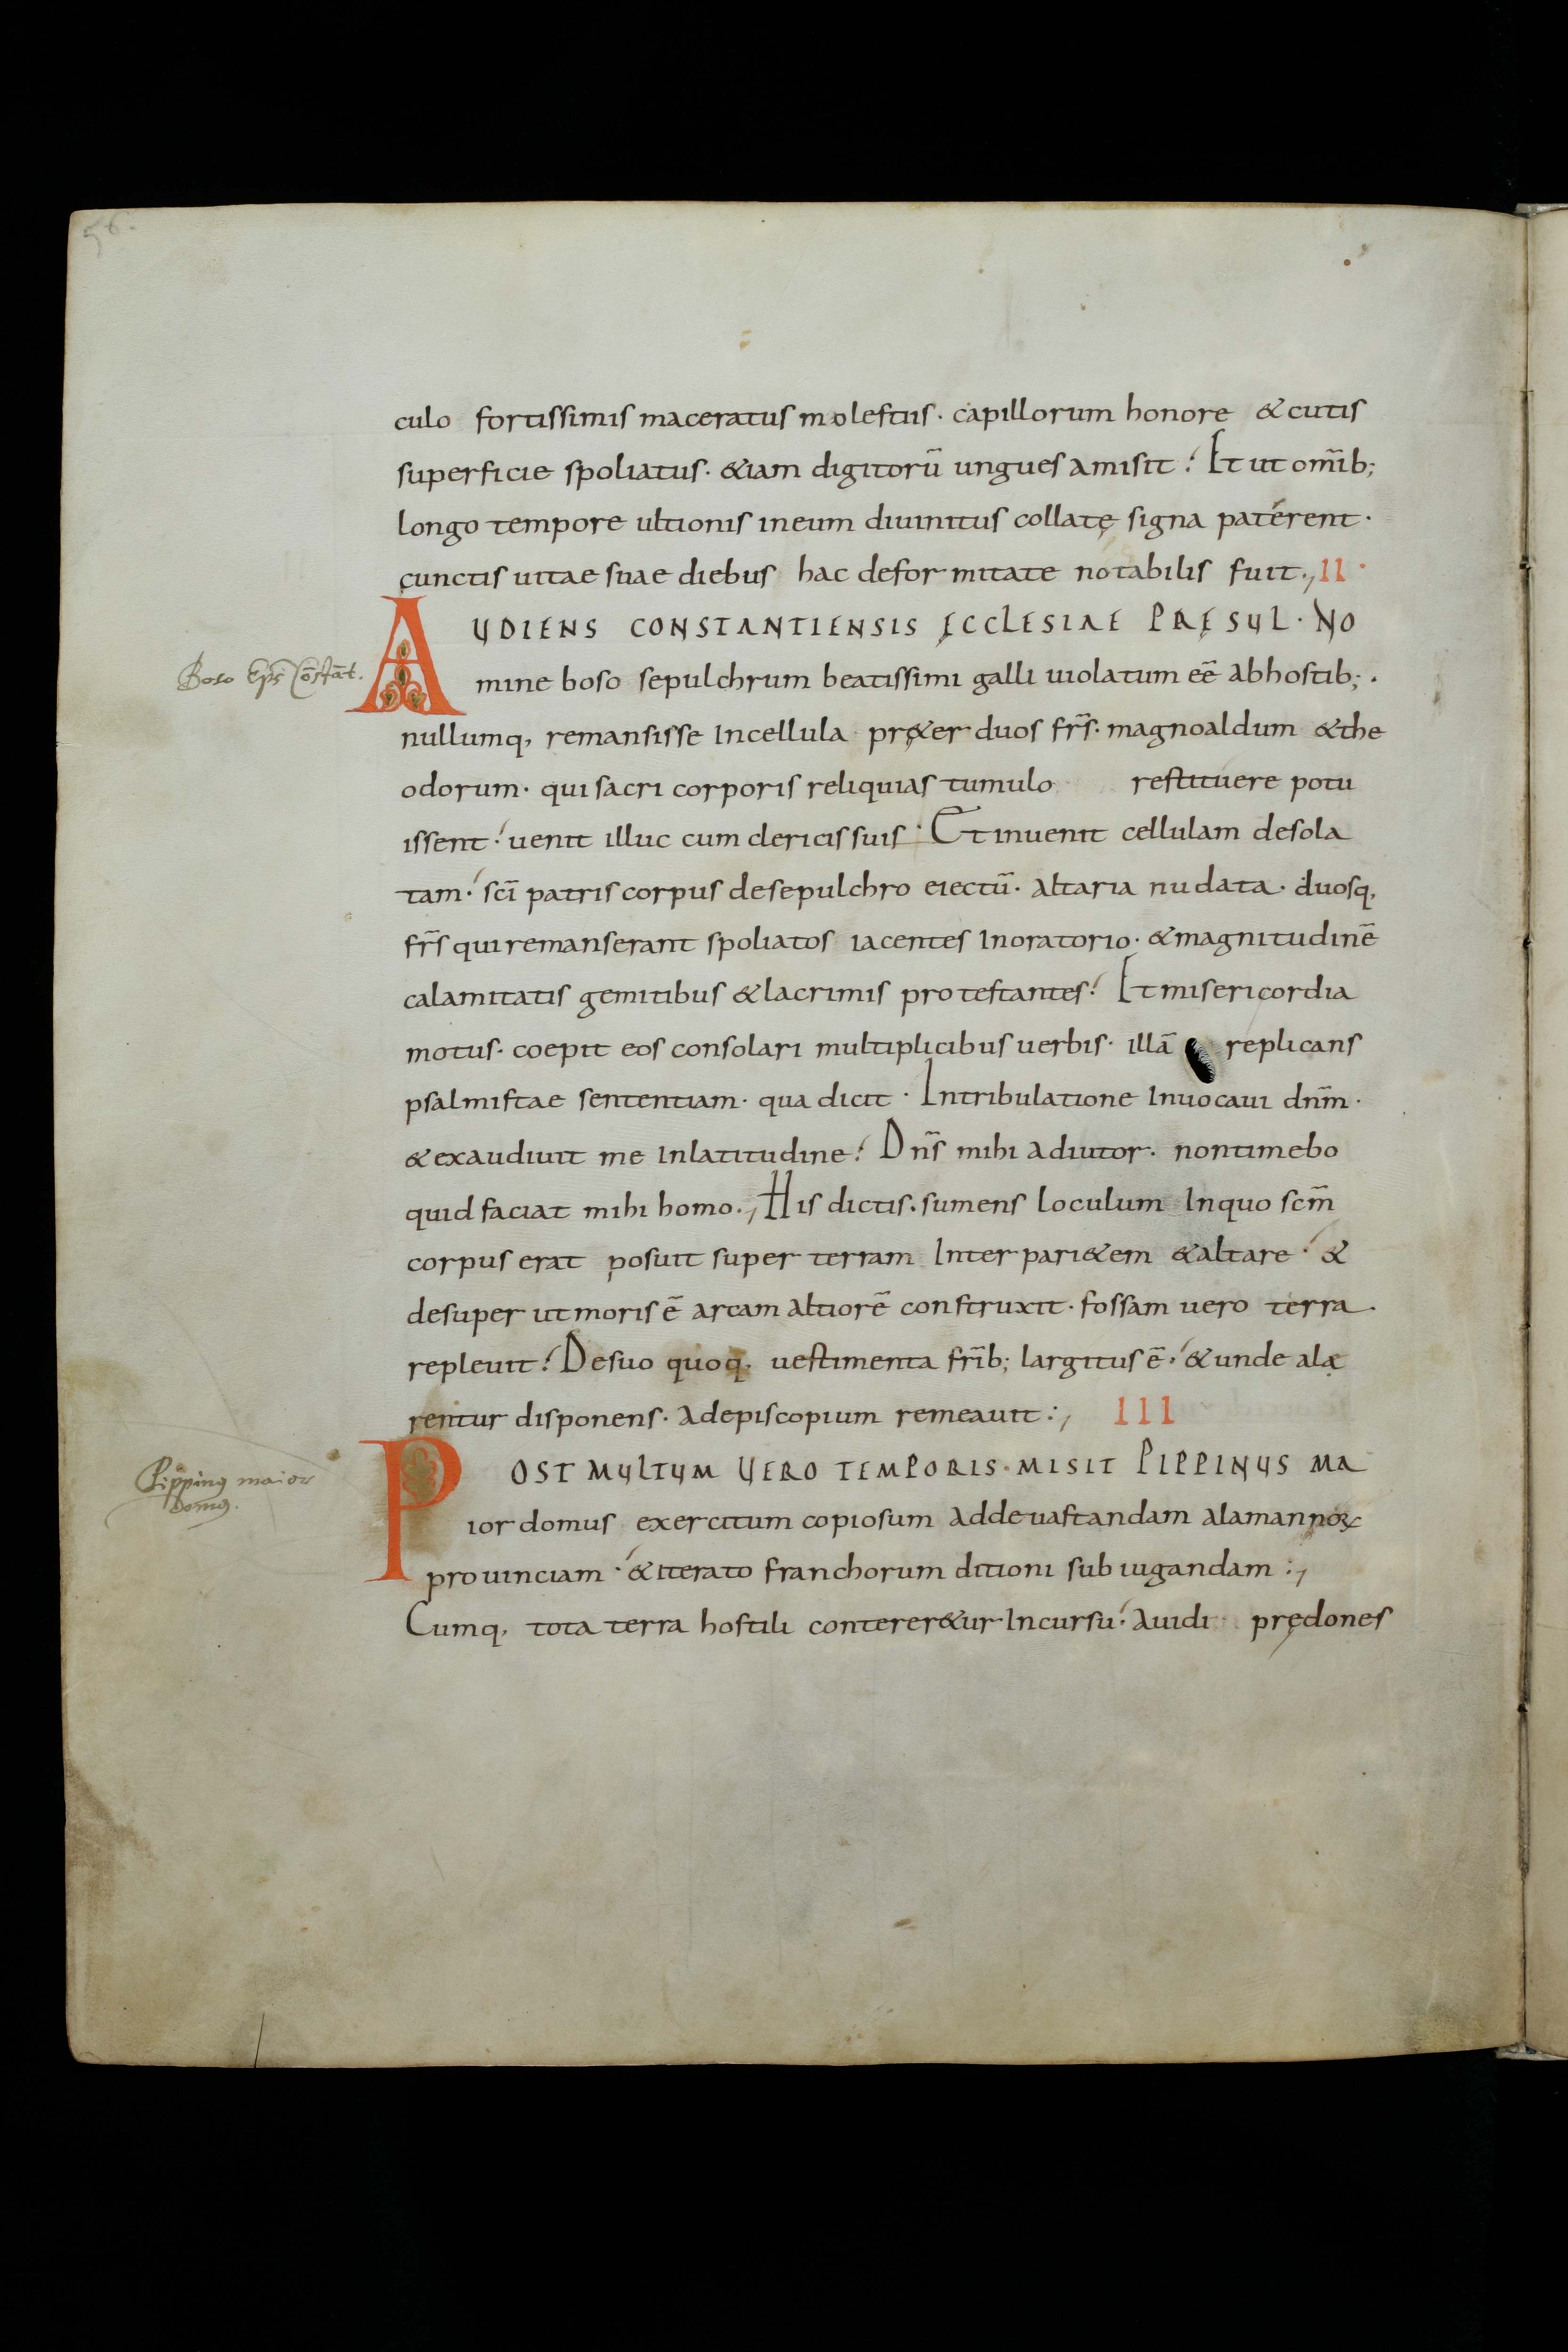 56.
culo fortissimis maceratus molestiis · capillorum honore & cutis
superficie spoliatus · &iam digitorū ungues amisit ; Et ut om̅ib;
longo tempore ultionis ineum diuinitus collatę signa paterent ·
cunctis uitae suae diebus hac deformitate notabilis fuit ., II ·
AUDIENS CONSTANTIENSIS ĘCCLESIAE PRĘSUL · NO
Boso Ep̅s Co̅sta̅t.
mine boso sepulchrum beatissimi galli uiolatum eē abhostib; ·
nullumq, remansisse Incellula pręter duos fr̅s · magnoaldum &the
odorum · qui sacri corporis reliquias tumulo restituere potu
issent · uenit illuc cum clericis suis · Et inuenit cellulam desola
tam · sc̅i patris corpus desepulchro eiectū · altaria nudata · duosq,
fr̅s qui remanserant spoliatos iacentes Inoratorio · &magnitudinē
calamitatis gemitibus &lacrimis protestantes ; Et misericordia
motus · coepit eos consolari multiplicibus uerbis · illā replicans
psalmistae sententiam · qua dicit · Intribulatione Inuocaui dn̅m ·
&exaudiuit me Inlatitudine ; Dn̅s mihi adiutor · nontimebo
quid faciat mihi homo ., His dictis · sumens loculum Inquo sc̅m
corpus erat posuit super terram Inter pari&em &altare · &
desuper ut moris ē arcam altiorē construxit · fossam uero terra ·
repleuit ; Desuo quoq, uestimenta fr̅ib; largitus ē · &unde alę
rentur disponens · adepiscopium remeauit :, III
POST MULTUM UERO TEMPORIS · MISIT PIPPINUS MA
Pippinꝰ maior
domꝰ.
ior domus exercitum copiosum addeuastandam alamannoꝝ
prouinciam · &iterato franchorum ditioni subiugandam :,
Cumq, tota terra hostili conterer&ur Incursu · auidi prędones